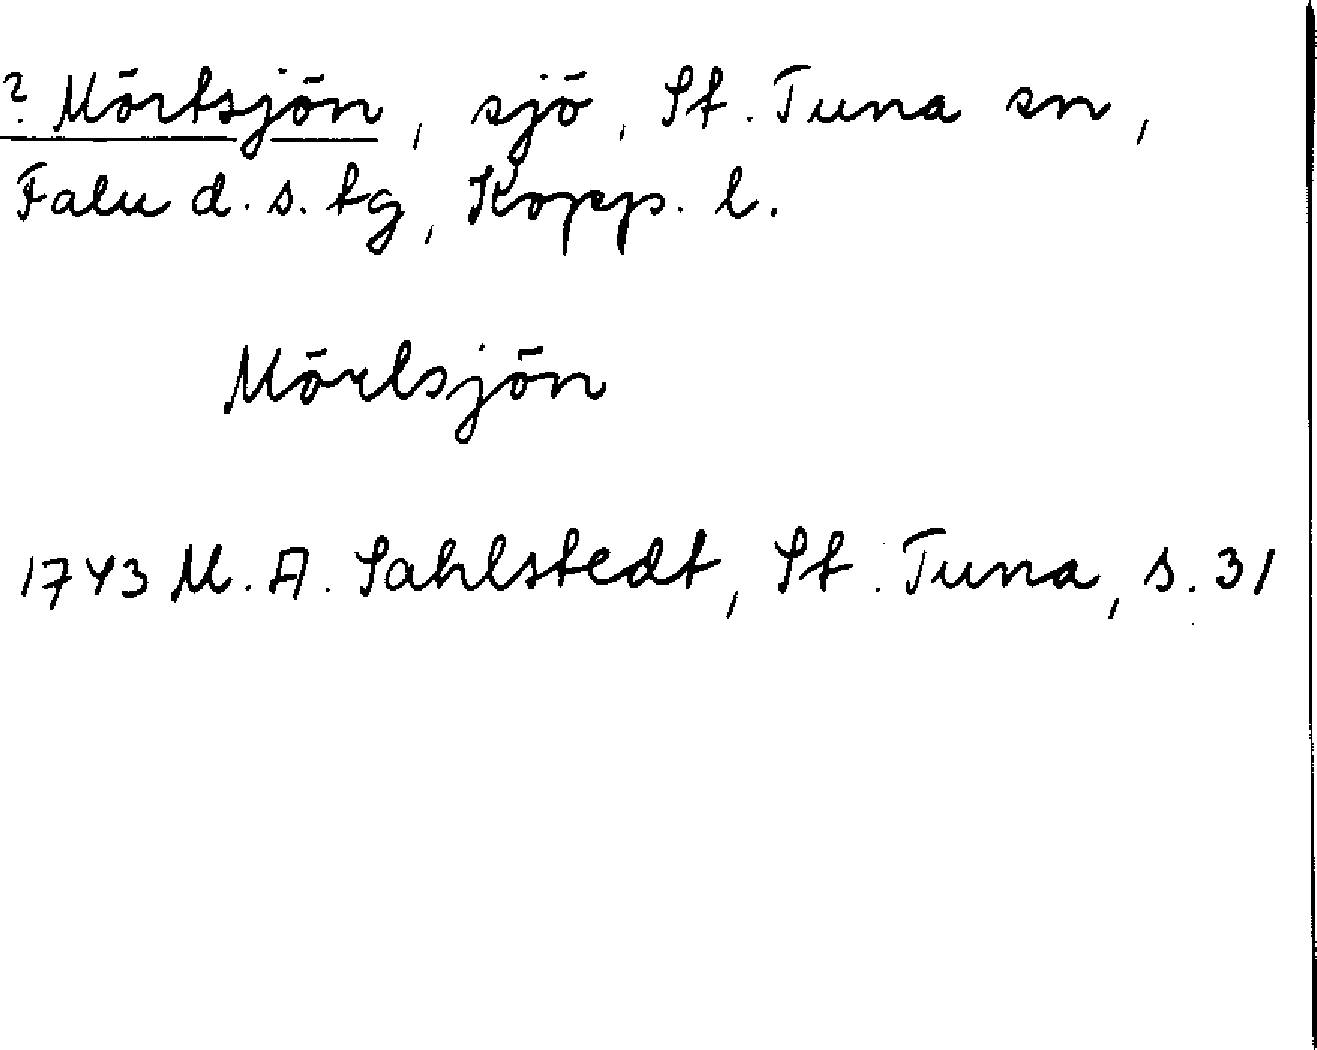 ? Mörtsjön, sjö, St. Tuna sn,
Falu d. s. tg, Kopp. l.
Mörtsjön
1743 M. A. Sahlstedt, St. Tuna, s. 31